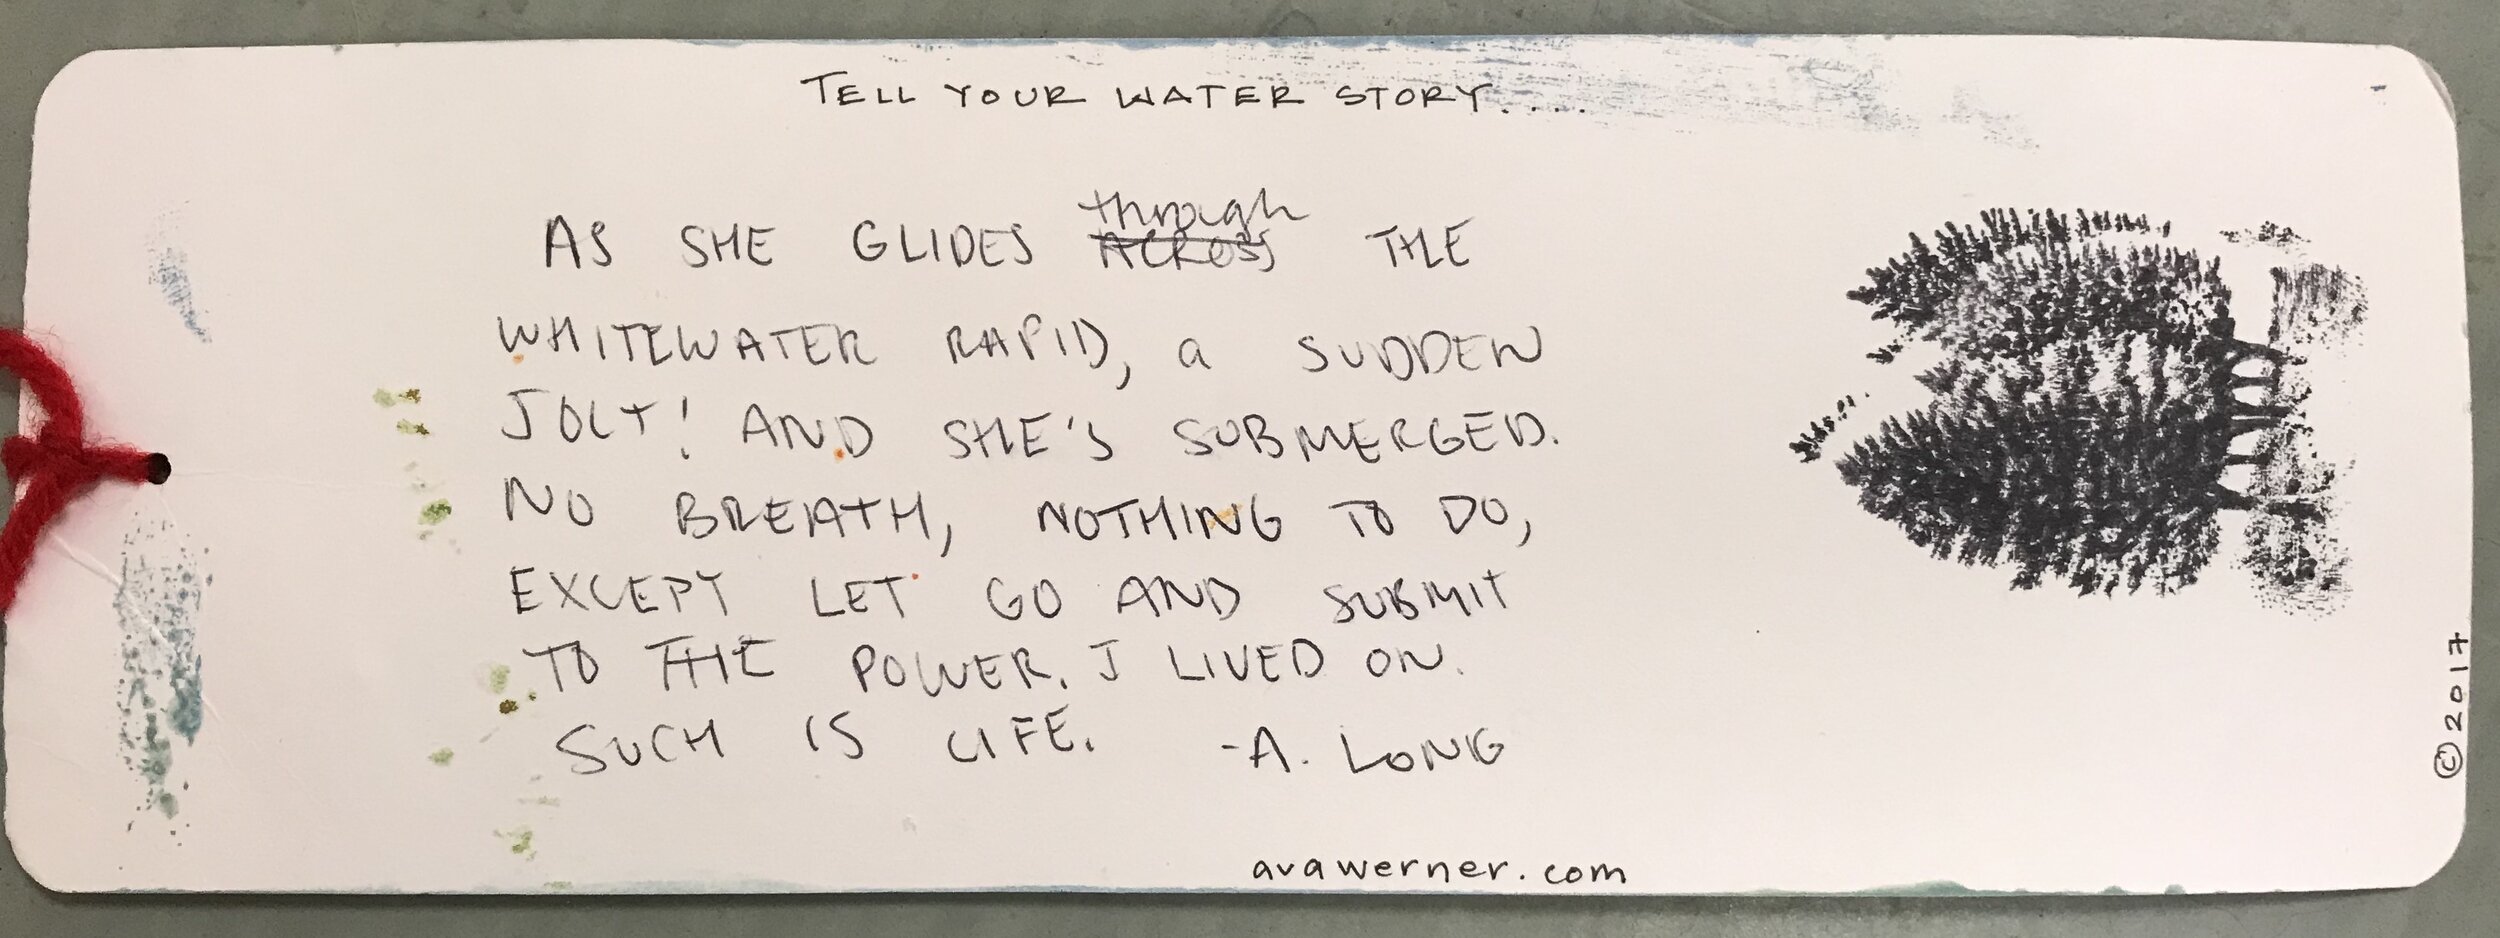 TELL YOUR WATER STORY....
AS SHE GLIDES through ACROSS THE
WHITEWATER RAPID, a SUDDEN
JOLT! AND SHE'S SUBMERGED.
NO BREATH, NOTHING TO DO,
EXCEPT LET GO AND SUBMIT
TO THE POWER. I LIVED ON.
SUCH IS LIFE. -A. LONG
avawerner.com
©2017